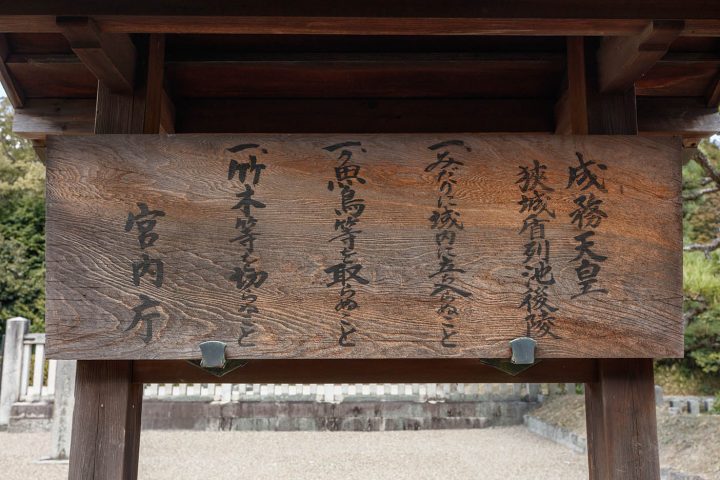 成務天皇
狹城盾列池後陵
一、みだりに域内に立入らぬこと
一、魚鳥等を取らぬこと
一、竹木等を切らぬこと
宮内庁